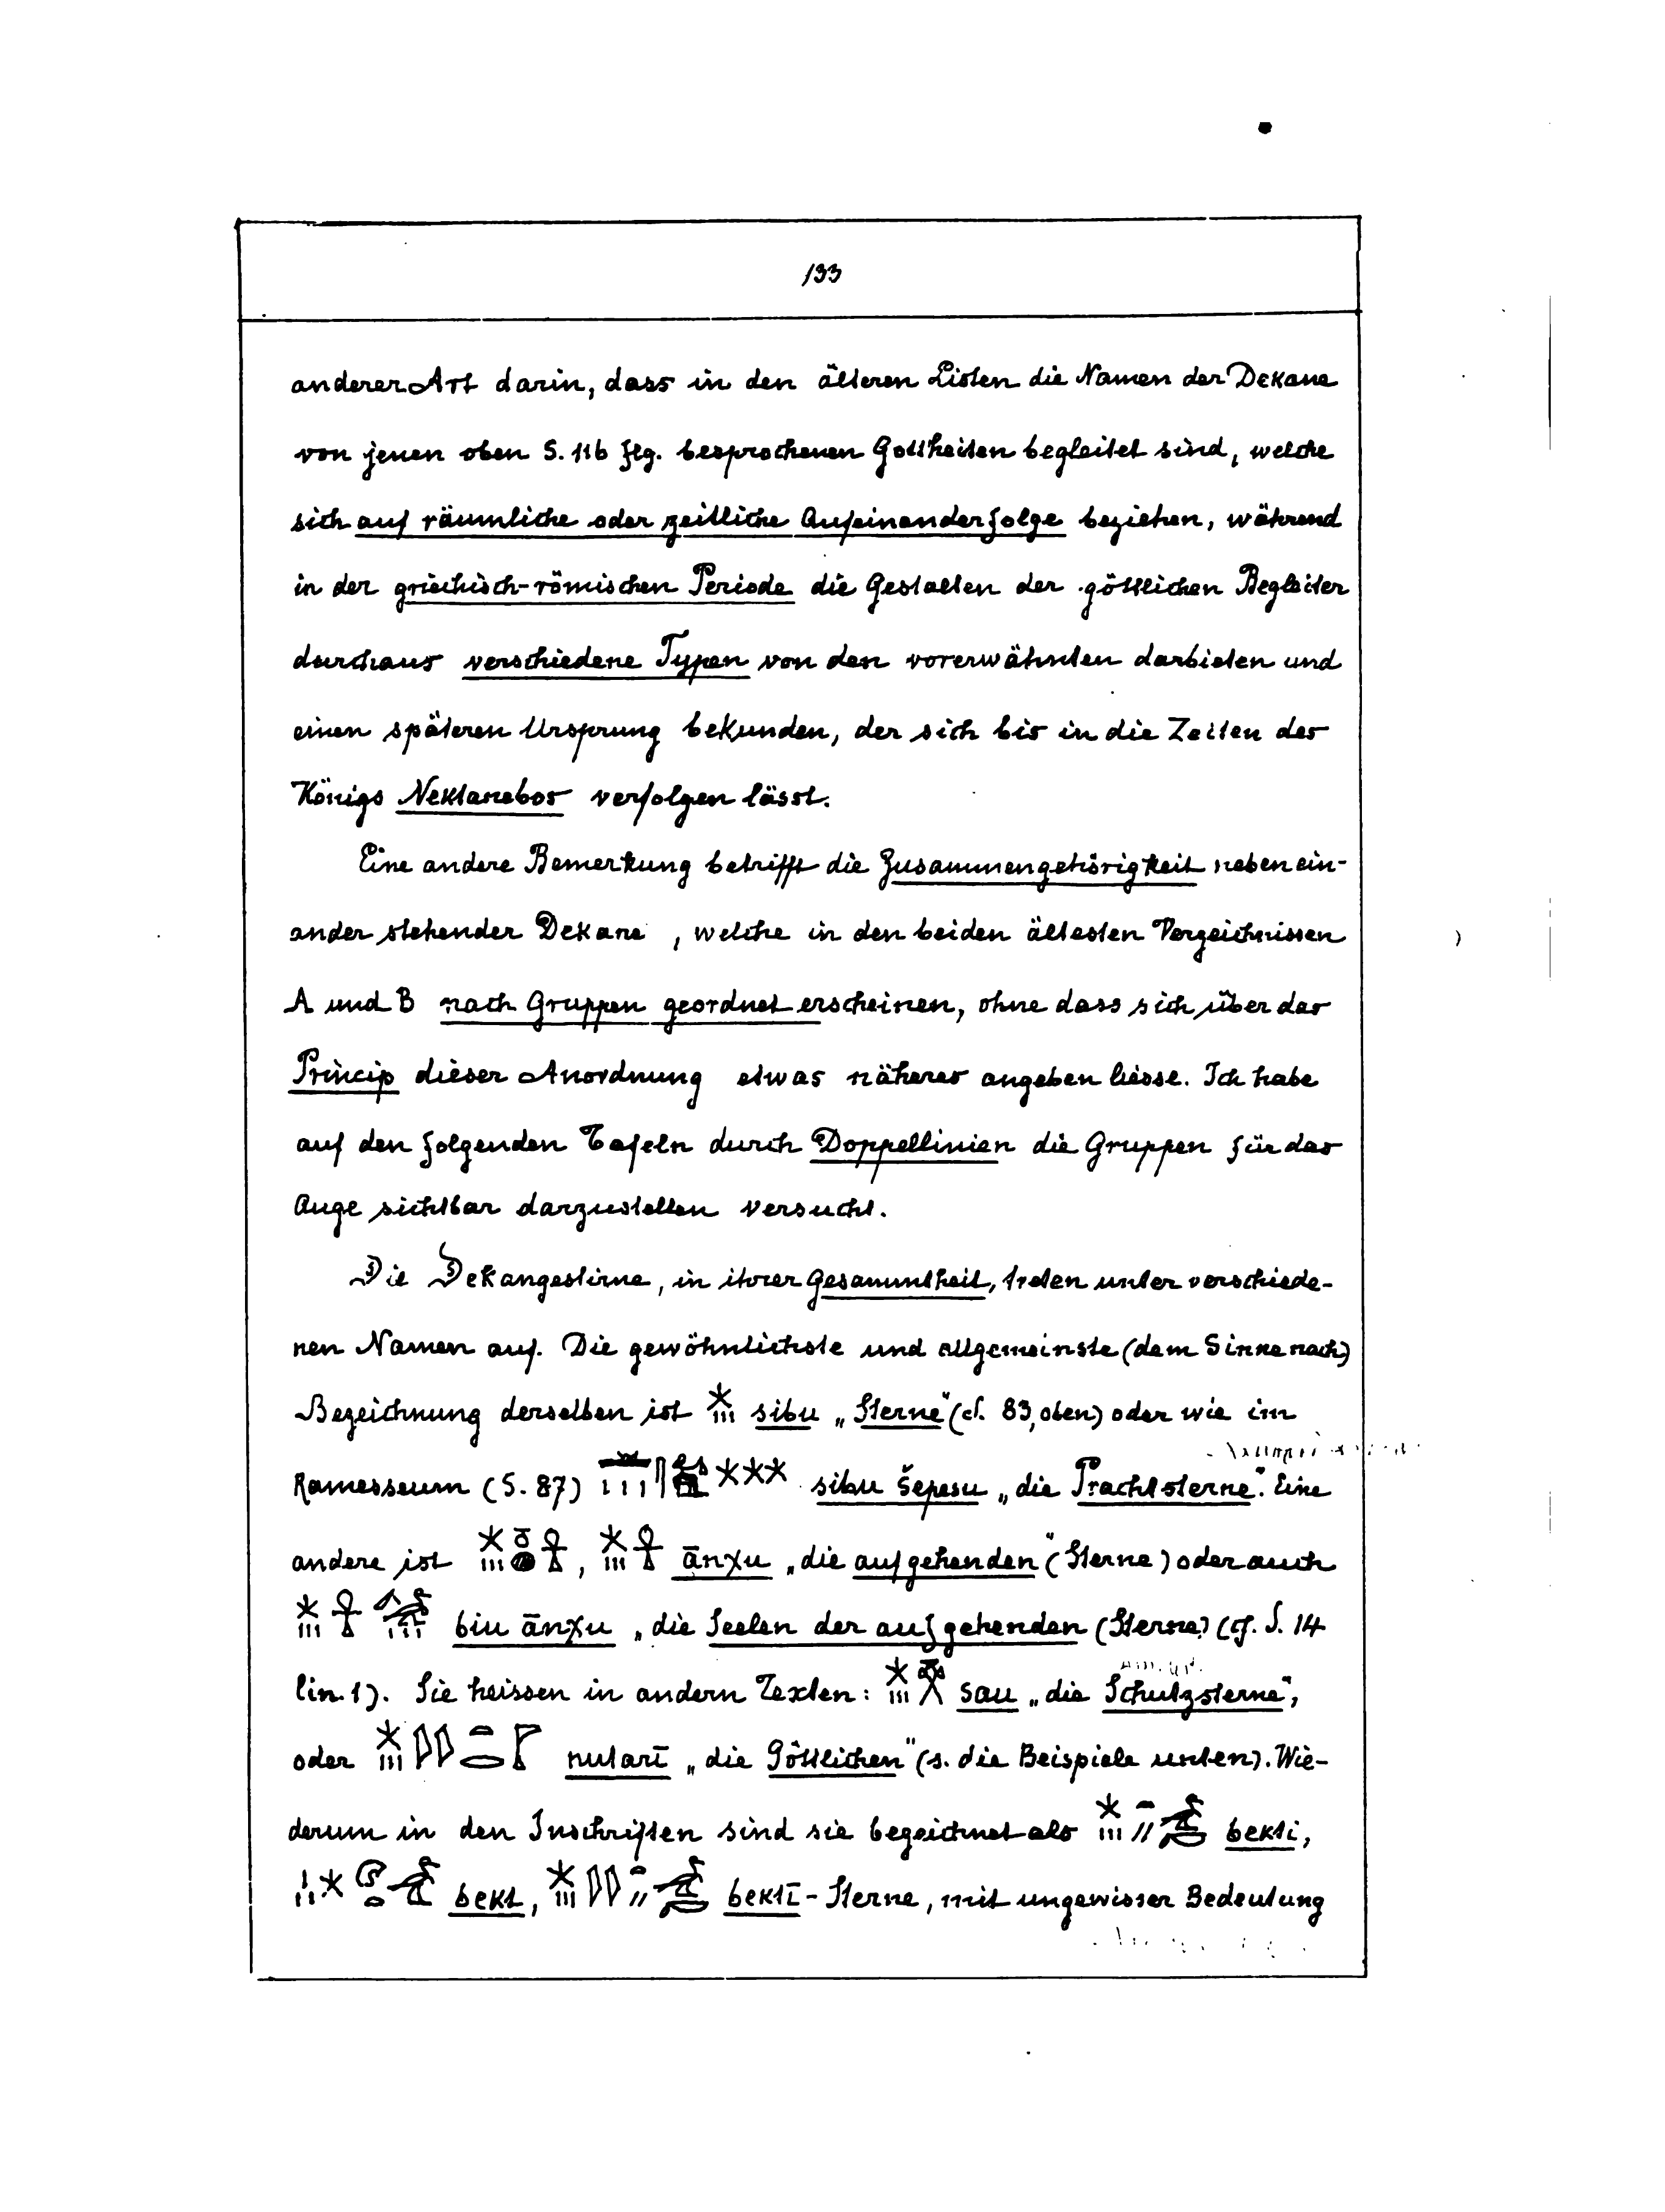 133
anderer Art darin, dass in den älteren Listen die Namen der Dekane
von jenen oben S. 116 flg. besprochenen Gottheiten begleitet sind, welche
sich auf räumliche oder zeitliche Aufeinanderfolge beziehen, während
in der griechisch-römischen Periode die Gestalten der göttlichen Begleiter
durchaus verschiedene Typen von den vorerwähnten darbieten und
einen späteren Ursprung bekunden, der sich bis in die Zeiten des
Königs Nektanebos verfolgen lässt.
Eine andere Bemerkung betrifft die Zusammengehörigkeit neben ein-
ander stehender Dekane, welche in den beiden ältesten Verzeichnissen
A und B nach Gruppen geordnet erscheinen, ohne dass sich über das
Princip dieser Anordnung etwas näheres angeben liesse. Ich habe
auf den folgenden Tafeln durch Doppellinien die Gruppen für das
Auge sichtbar darzustellen versucht.
Die Dekangestirne, in ihrer Gesammtheit, treten unter verschiede-
nen Namen auf. Die gewöhnlichste und allgemeinste (dem Sinne nach)
Bezeichnung derselben ist sibu „Sterne" (S. 83, oben) oder wie im
Ramesseum (S. 87) sibu šepesu „die Prachtsterne". Eine
andere ist , ānχu „die aufgehenden" (Sterne) oder auch
biu ānχu „die Seelen der aufgehenden (Sterne) (cf. S. 14
lin. 1). Sie heissen in andern Texten: sau „die Schutzsterne",
oder nutarī „die Göttlichen" (s. die Beispiele unten). Wie-
derum in den Inschriften sind sie bezeichnet als bekti,
bekt, bektī-Sterne, mit ungewisser Bedeutung